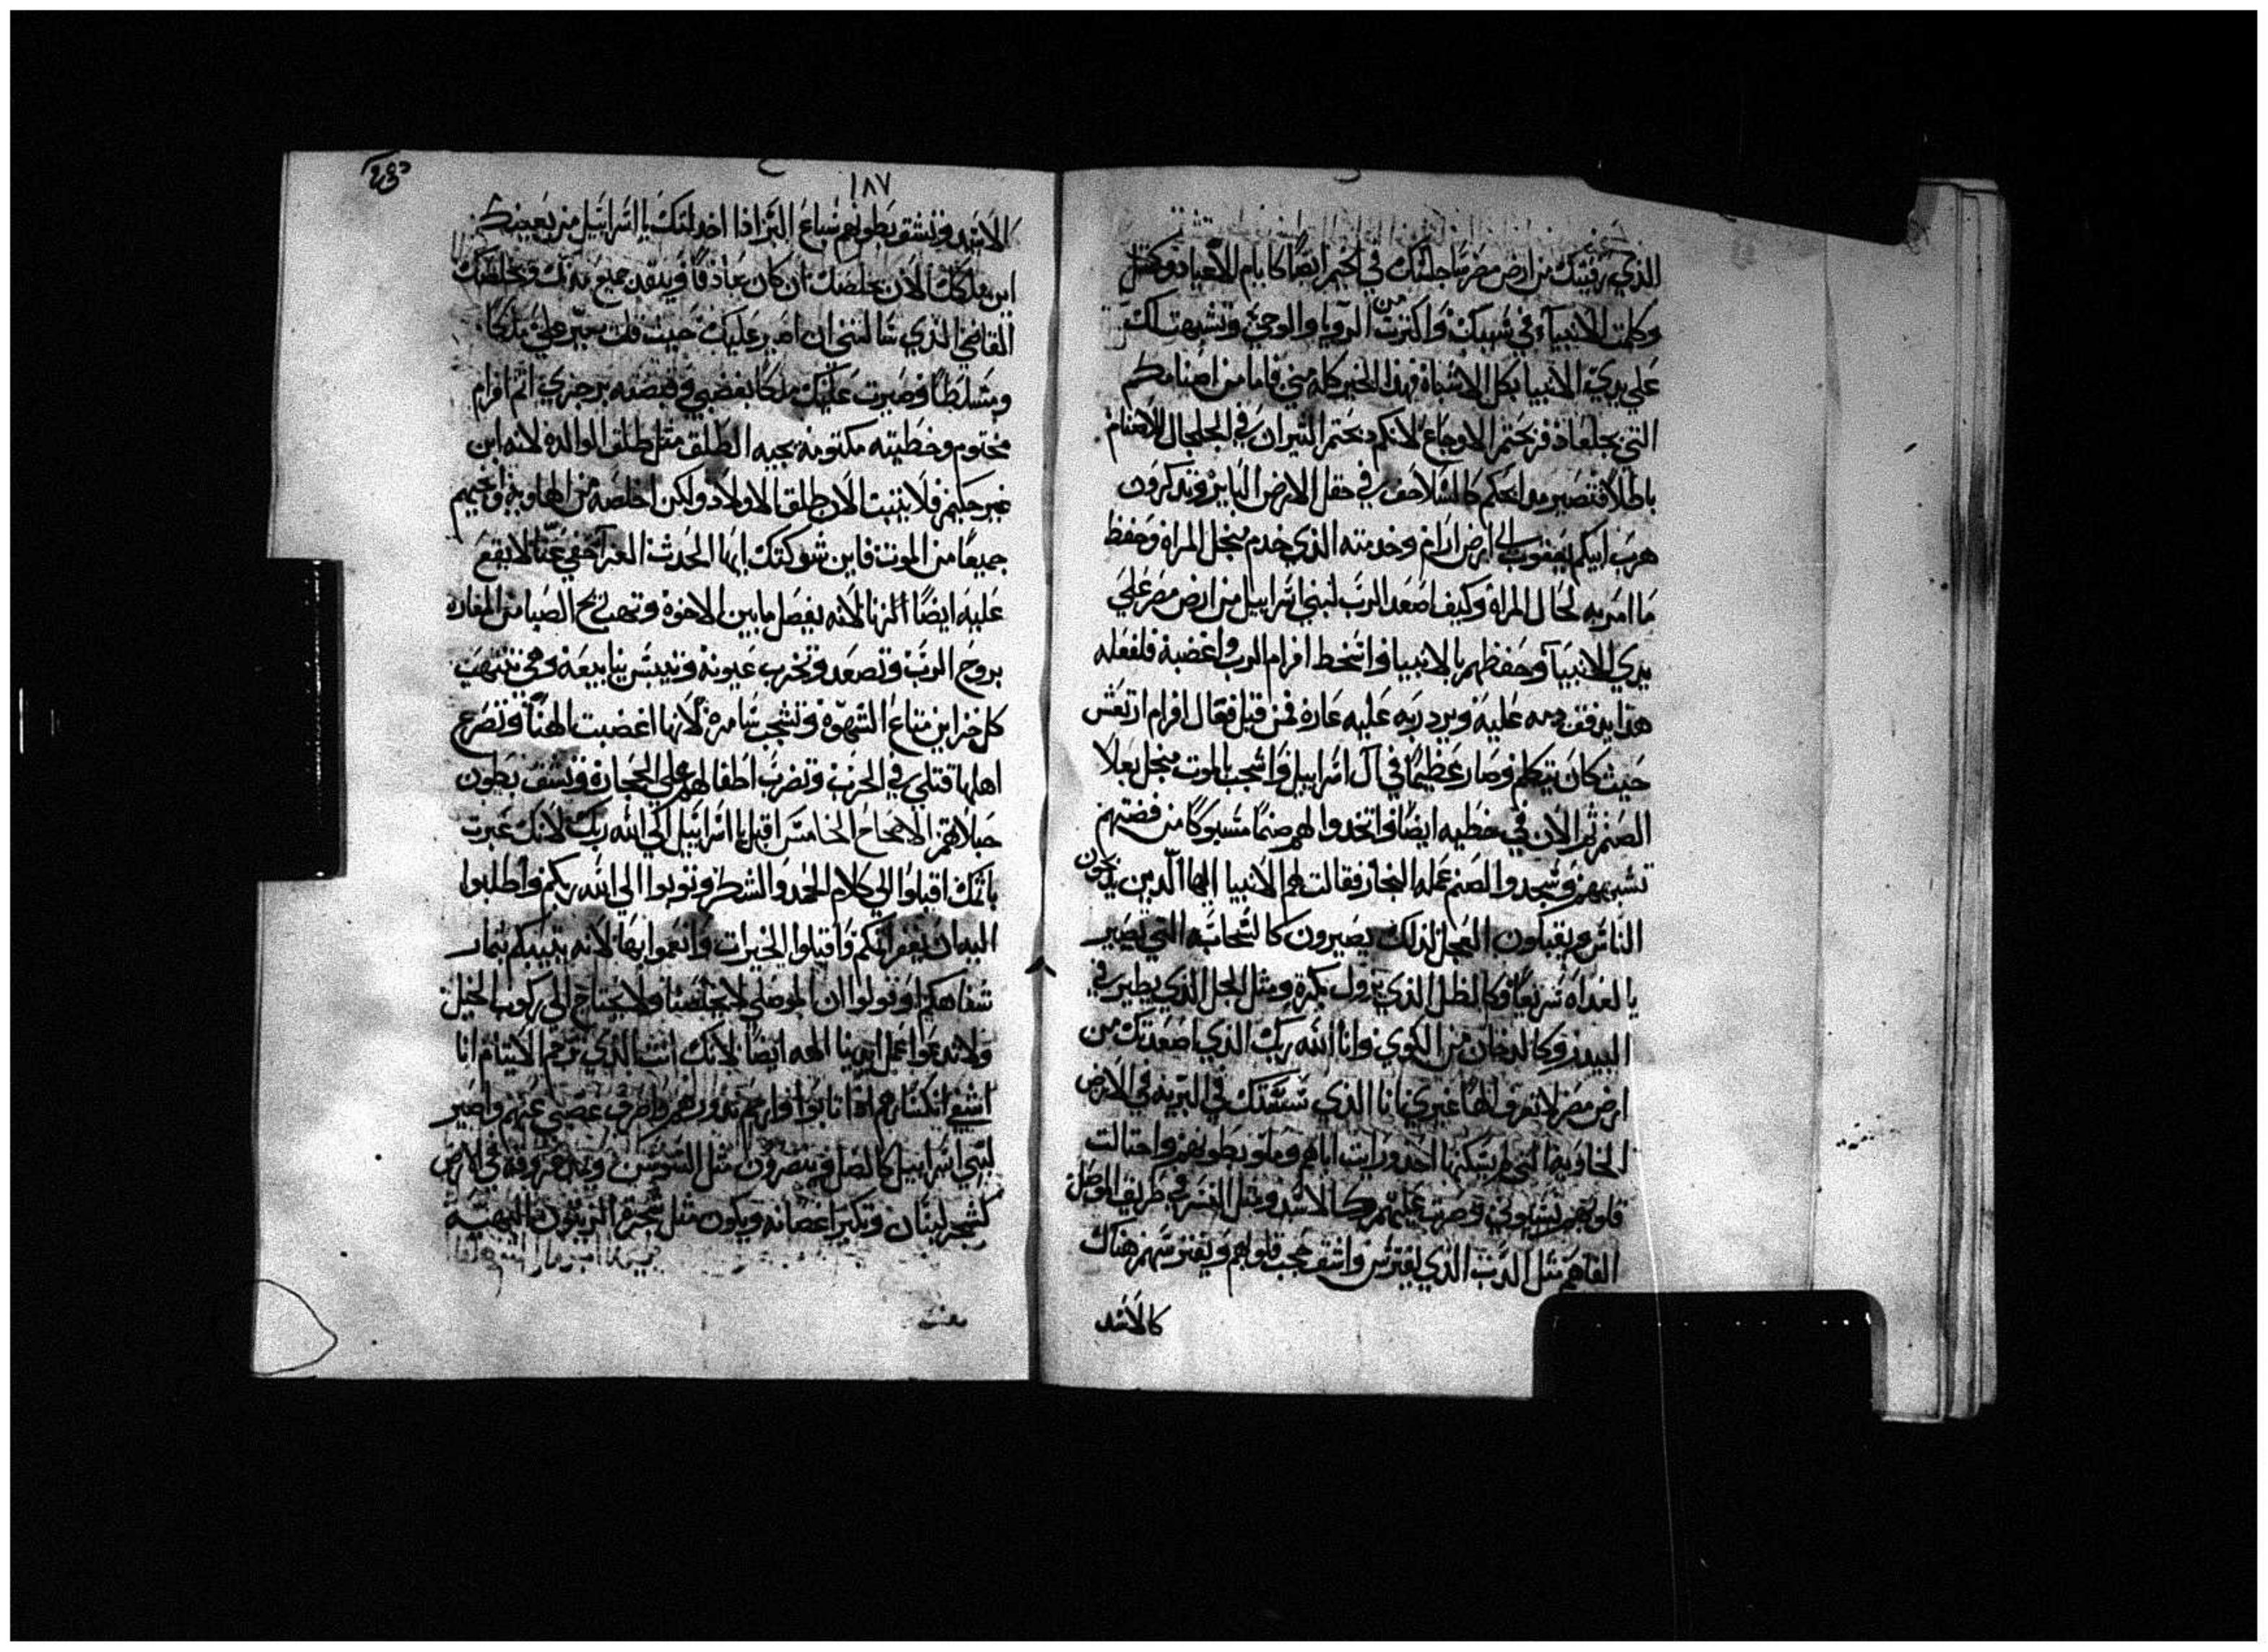 الذي رقيتك من ارض مصر ساجلسك في الخيم ايضًا كايام الاعياد وكمثل
وكلمت الانبياء في سببك واكثرت من الرويا والوحي وتشبهت لك
علي يدي الانبيا بكل الاشباه فهذا الخير كله مني فاما من اصنامكم
التي بجلعاد فزبحتم الاوجاع لانكم دبحتم التيران في الجلجال للاصنام
باطلاً فتصير موابحكم كالسلاحف في حقل الارض الباير وتدكرون
هرب ابيكم يعقوب الي ارض ارام وخدمته الذي خدم منجل المراه وحفظ
ما امر به لحال المراة وكيف اصعد الرب لبني اسراييل من ارض مصر علي
يدي الانبيآ وحفظهم بالانبيا فاسخط افرام الرب واغضبه فلفعله
هدا يدفق دمه عليه ويرد ربه عليه عاره فمن قبل فعال افرام ارتعش
حيث كان يتكلم وصار عظيمًا في ال اسراييل واشجب بالموت منجل بعلا
الصنم ثم الان في خطيه ايضًا واتخدوا لهم صنمًا مسبوكًا من فضتهم
تشبههم وسجدوا لصنم عمله النجار فقالت لهم الانبيا ايها الدين يدبحون
الناس ويقبلون العجل لذلك يصيرون كالسحابه التي تصير
بالغداه سريعًا وكالظل الذي يزول بكرة ومثل الحل الذي يطير في
البيدر وكالدخان من الكوي وانا الله ربك الذي اصعدتك من
ارض مصر لا تعرف الهًا غيري انا الذي سستك في البريه في الارض
الخاويه التي لم يسكنها احد ورايت اباهم وملو بطونهم واحتالت
قلوبهم نسيوني وصرت عليهم كالاسد ومثل النسر في طريق الموصل
القاهم مثل الدب الذي يفترس واشق حجب قلوبهم ويفترسهم هناك
كالاسد
١٨٧
الاسد وتشق بطونهم سباع البر اذا اخدلتك يا اسراييل من يعينك
اين ملكك الان يخلصك ان كان صادقًا وينقد جميع مدنك ويخلصك
القاضي الذي سالتني ان اصير عليك حيث قلت صير علي ملكًا
ومسلطًا وصيرت عليك ملكًا بغضبي وقبضته برجزي اتم افرام
مختوم وخطيته مكتومه يجيه الطلق مثل طلق الوالده لانه ابن
غير حليم فلا يثبت الان طلق الاولاد ولكن اخلصه من الهاويه وانجيهم
جميعًا من الموت فاين شوكتك ايها الحدث العزا خفي عنا لا يقع
عليه ايضًا الزنا لانه يفصل ما بين الاخوة وتهب ريح الصبا من المفازه
بروح الرب وتصعد وتخرب عيونه وتيبس ينابيعه وهي تنتهب
كل خزاين متاع الشهوة وتشجب سامرة لانها اغضبت الهنا وتصرع
اهلها قتلي في الحرب وتضرب اطفالهم علي الحجاره وتشق بطون
حبلاهم الاصحاح الخامس اقبل يا اسراييل الي الله ربك لانك عبرت
باتمك اقبلوا الي كلام الحمد والشطر وتوبوا الي الله ربكم واطلبوا
اليه ان يغفر لكم واقبلوا الخيرات وانعموا بها لانه يتيبكم تمار
شفاهكم وقولوا ان الموصلي لا يخلصنا ولا نحتاج الي ركوب الخيل
ولا ندعوا عمل ايدينا الهه ايضًا لانك انت الذي ترحم الايتام انا
اشفي انكسارهم ادا تابوا وارحم ندورهم واصرف غضبي عنهم واصير
لبني اسراييل كالطل وينصرون مثل السوسن وتبدو عروقه في الارض
كشجر لبنان وتكبر اغصانه ويكون مثل شجرة الزيتون البهية